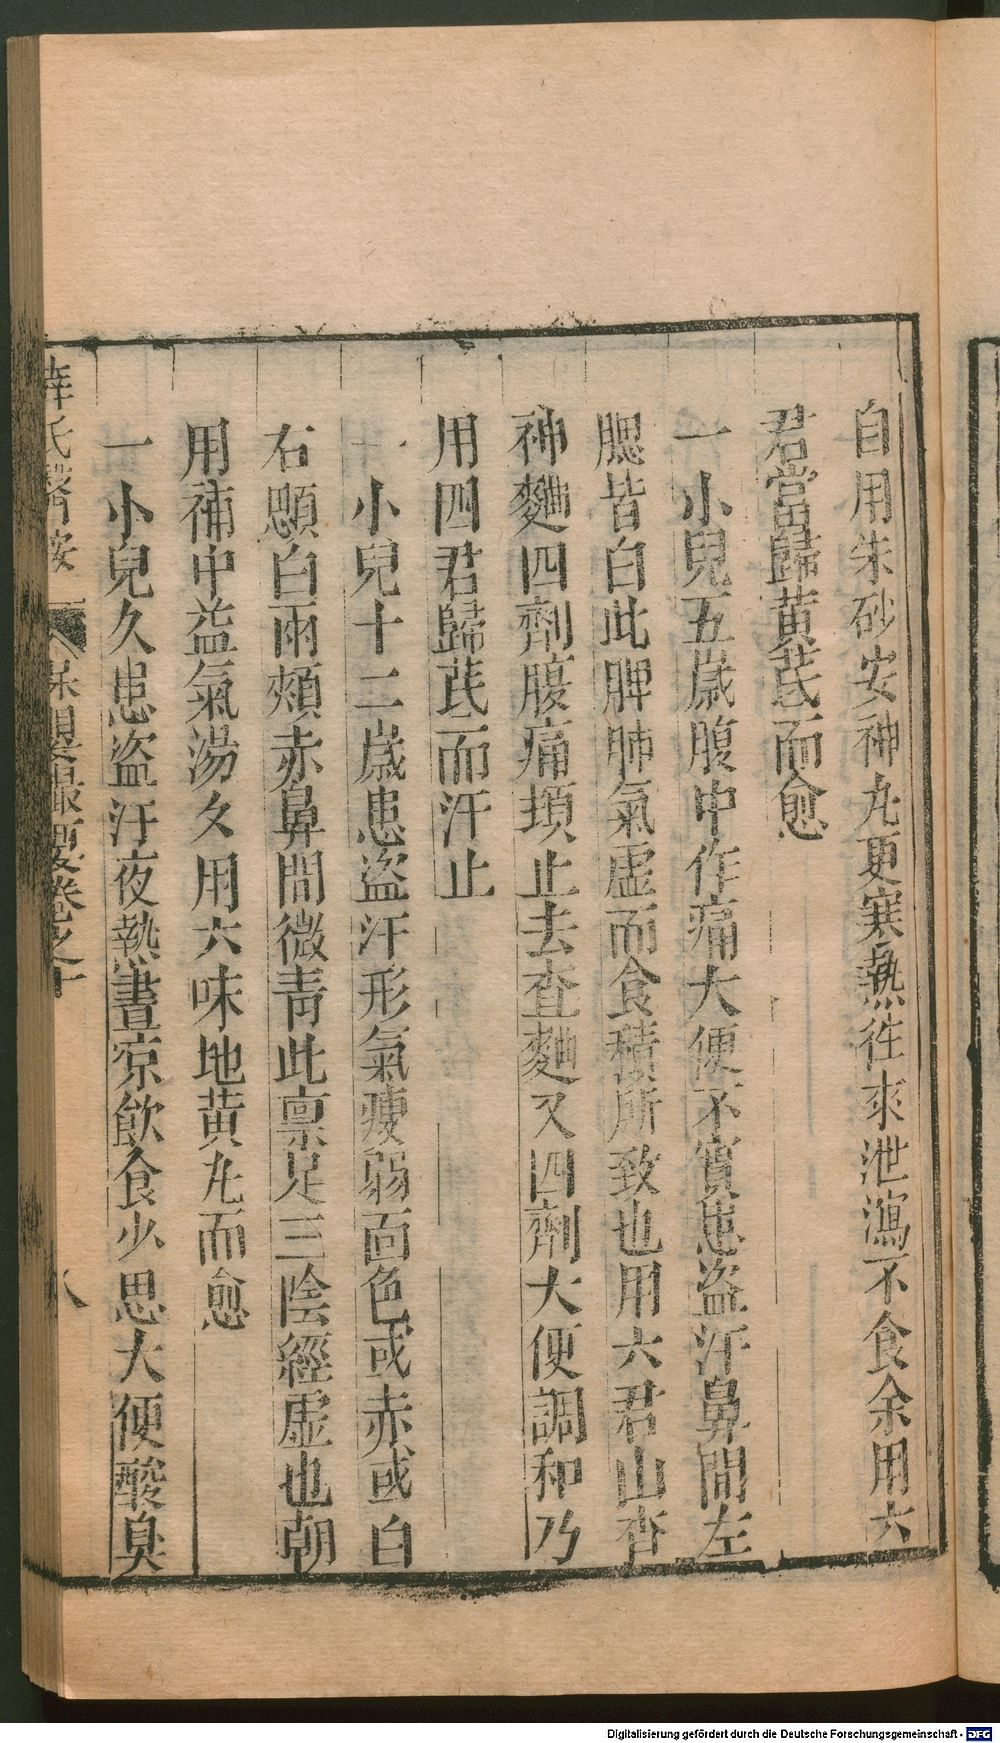 自用朱砂安神丸更寒熱徃來泄瀉不食余用六
君當歸黄茋而愈
一小兒五歲腹中作痛大便不實患盗汗鼻間左
腮皆白此脾肺氣虚而食積所致也用六君山査
神麯四劑腹痛頓止去査麯又四劑大便調和乃
用四君歸茋而汗止
一小兒十二歲患盗汗形氣瘦弱面色或赤或白
右顋白兩頰赤鼻間微青此禀足三陰經虚也朝
用補中益氣湯夕用六味地黄丸而愈
一小兒久患盗汗夜熱晝凉飲食少思大便酸臭
薛氏醫按 保嬰撮要卷之十 八
Digitalisierung gefördert durch die Deutsche Forschungsgemeinschaft - DFG